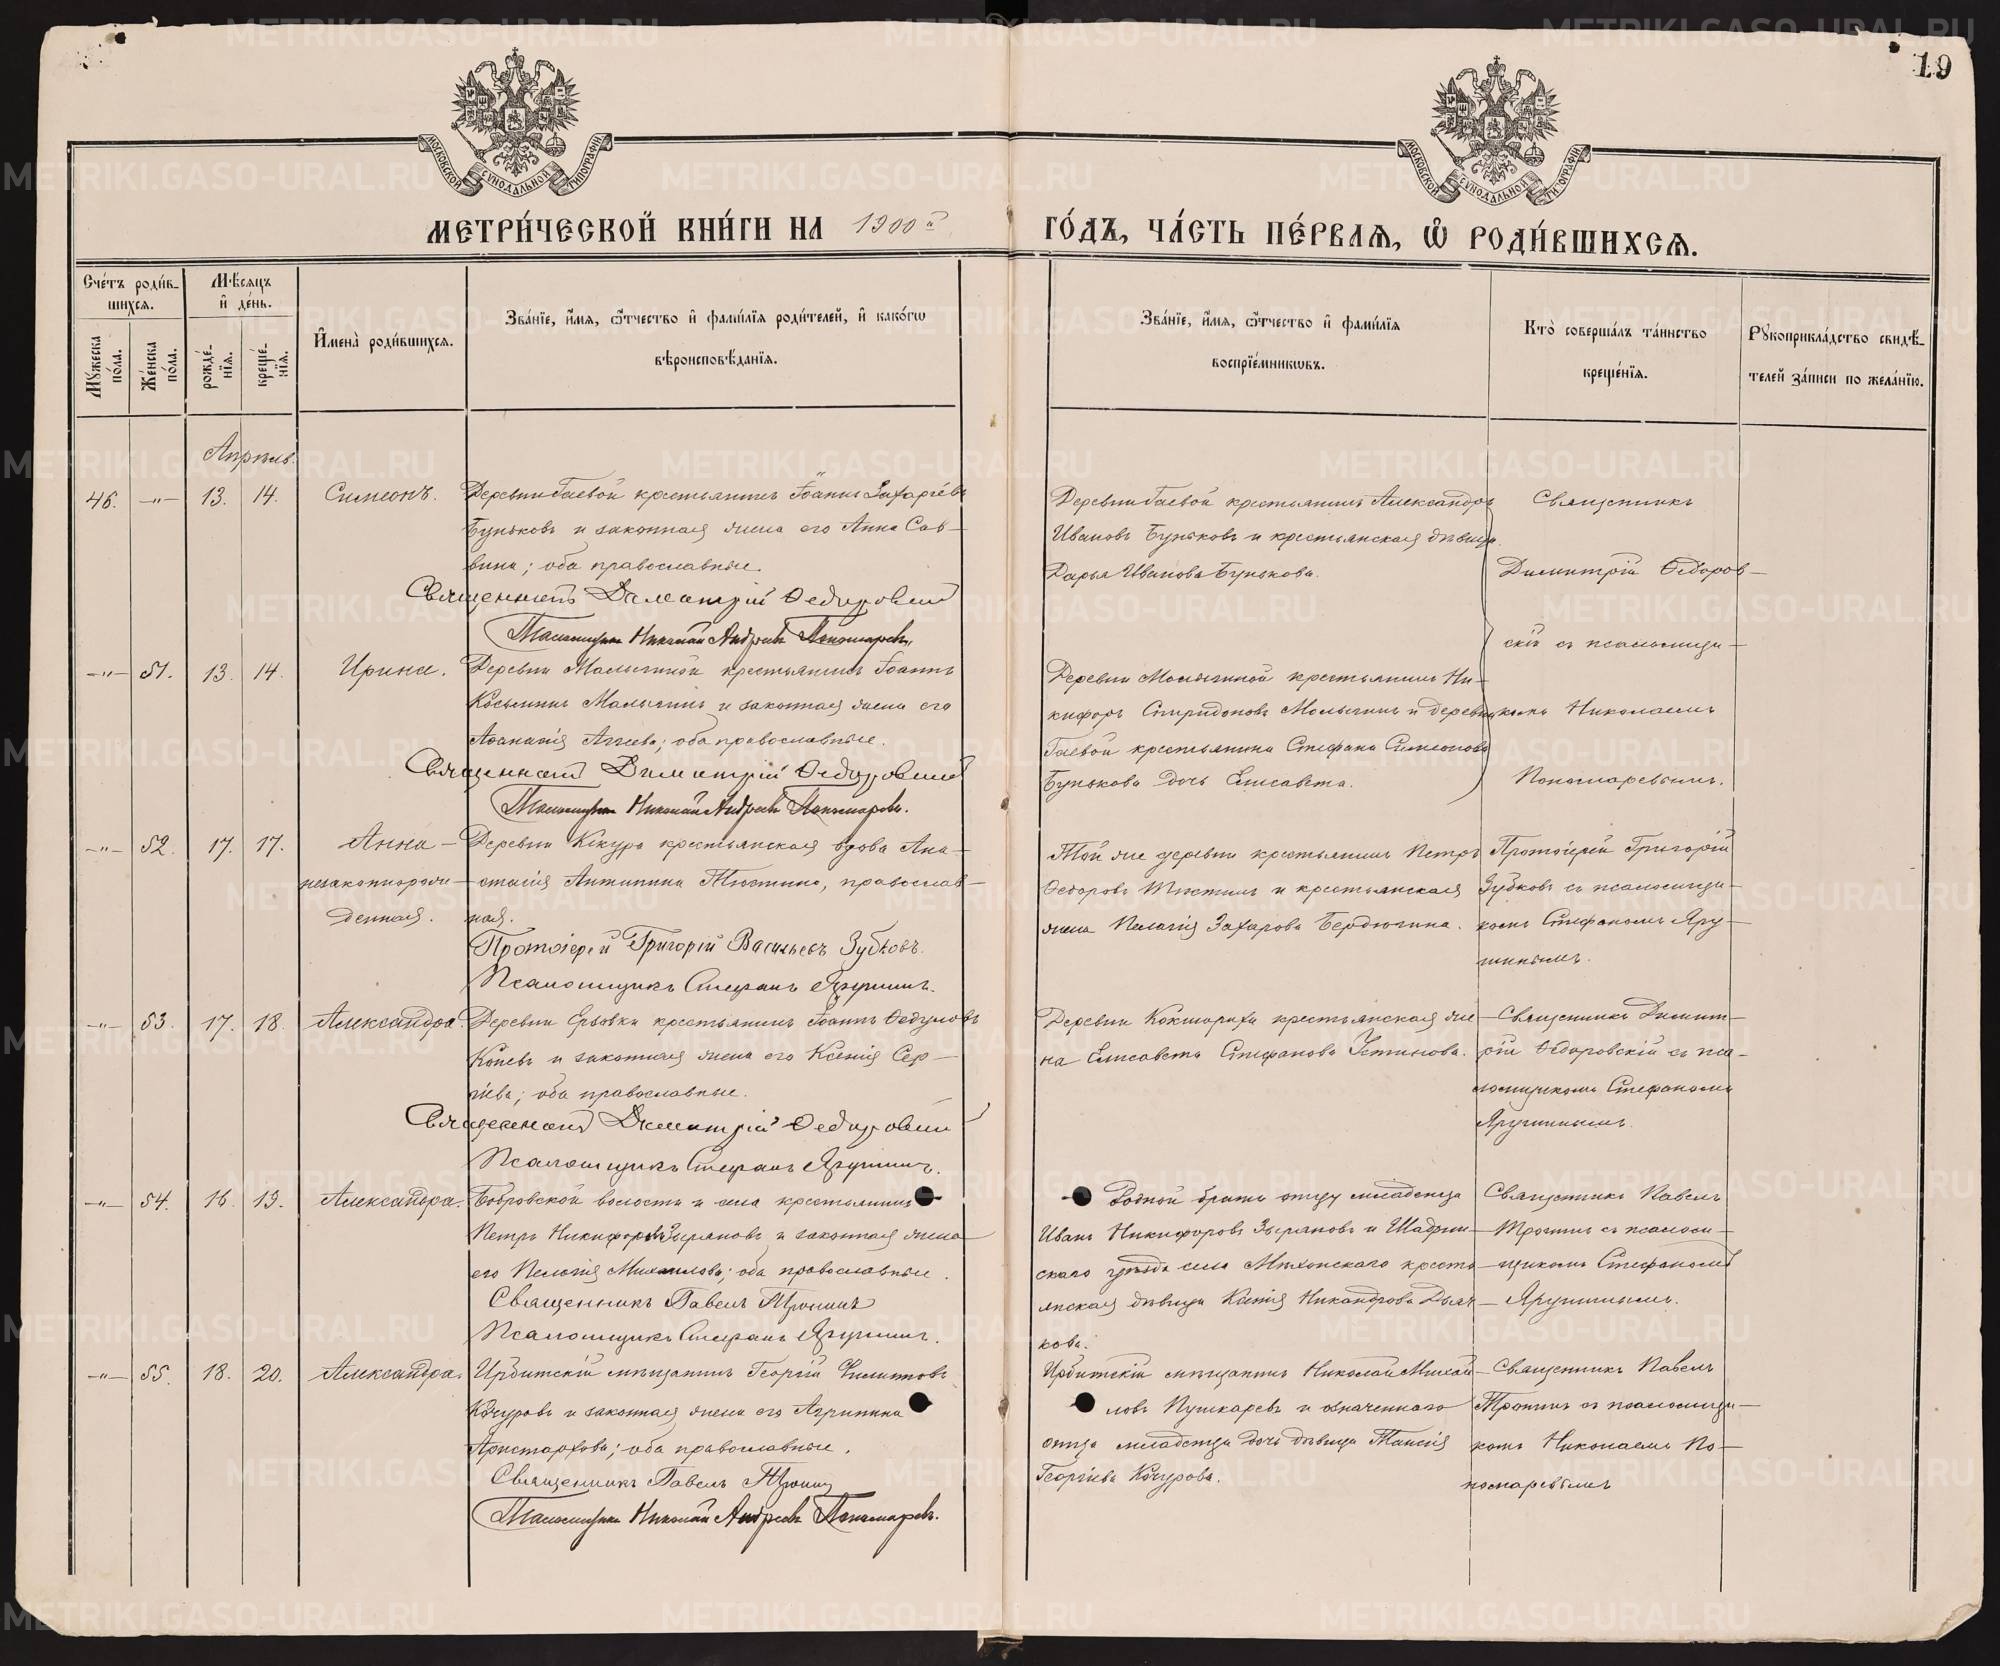 19
МОСКОВСКОЙ СѴНОДАЛЬНОЙ ТИПОГРАФІИ
МОСКОВСКОЙ СѴНОДАЛЬНОЙ ТИПОГРАФІИ
МЕТРИ́ЧЕСКОЙ КНИ́ГИ НА 1900й ГО́ДЪ, ЧА́СТЬ ПЕ́РВАѦ, Ѡ҆ РОДИ́ВШИХСѦ.
Сче́тъ роди́в-
шихсѧ.
Мѣ́сѧцъ
и҆ де́нь.
Мꙋ́жеска по́ла.
Же́нска по́ла.
рожде́-нїѧ.
креще́-нїѧ.
И҆мена̀ роди́вшихсѧ.
Зва́нїе, и҆́мѧ, ѻ҆́тчество и҆ фами́лїѧ роди́телей, и҆ како́гѡ
вѣроисповѣ́данїѧ.
Зва́нїе, и҆́мѧ, ѻ҆́тчество и҆ фами́лїѧ
воспрїе́мникѡвъ.
Кто̀ соверша́лъ та́инство
креще́нїѧ.
Рꙋкоприкла́дство свидѣ́-
телей за́писи по жела́нїю.
Апрѣль.
46. —"— 13. 14. Симеонъ.
Деревни Гаевой крестьянинъ Іоаннъ Захаріевъ
Буньковъ и законная жена его Анна Сав-
вина; оба православные.
Священникъ Димитрій Ѳедоровскій
Псаломщикъ Николай Андреевъ Пономаревъ.
Деревни Гаевой крестьянинъ Александръ
Ивановъ Буньковъ и крестьянская дѣвица
Дарья Иванова Бунькова.
Священникъ
Димитрій Ѳедоров-
скій съ псаломщи-
комъ Николаемъ
Пономаревымъ.
—"— 51. 13. 14. Ирина.
Деревни Малыгиной крестьянинъ Іоаннъ
Косьминъ Малыгинъ и законная жена его
Аѳанасія Аггеева; оба православные.
Священникъ Димитрій Ѳедоровскій
Псаломщикъ Николай Андреевъ Пономаревъ.
Деревни Малыгиной крестьянинъ Ни-
кифоръ Спиридоновъ Малыгинъ и деревни
Гаевой крестьянина Стефана Симеонова
Бунькова дочь Елисавета.
—"— 52. 17. 17. Анна —
незаконнорож-
денная.
Деревни Кекура крестьянская вдова Ана-
стасія Антипина Тюстина, православ-
ная.
Протоіерей Григорій Васильевъ Зубковъ.
Псаломщикъ Стефанъ Ярушинъ.
Той же деревни крестьянинъ Петръ
Ѳедоровъ Тюстинъ и крестьянская
жена Пелагія Захарова Бердюгина.
Протоіерей Григорій
Зубковъ съ псаломщи-
комъ Стефаномъ Яру-
шинымъ.
—"— 53. 17. 18. Александра.
Деревни Ерзовки крестьянинъ Іоаннъ Ѳедуловъ
Коневъ и законная жена его Ксенія Сер-
гіева; оба православные.
Священникъ Димитрій Ѳедоровскій
Псаломщикъ Стефанъ Ярушинъ.
Деревни Кокшариха крестьянская же-
на Елисавета Стефанова Устинова.
Священникъ Димит-
рій Ѳедоровскій съ пса-
ломщикомъ Стефаномъ
Ярушинымъ.
—"— 54. 16. 19. Александра.
Бобровской волости и села крестьянинъ
Петръ Никифоровъ Зыряновъ и законная жена
его Пелагія Михаилова; оба православные.
Священникъ Павелъ Тронинъ
Псаломщикъ Стефанъ Ярушинъ.
Родной братъ отцу младенца
Иванъ Никифоровъ Зыряновъ и Шадрин-
скаго уѣзда села Мѣхонскаго кресть-
янская дѣвица Ксенія Никандрова Дьяч-
кова.
Священникъ Павелъ
Тронинъ съ псалом-
щикомъ Стефаномъ
Ярушинымъ.
—"— 55. 18. 20. Александра.
Ирбитскій мѣщанинъ Георгій Филипповъ
Кочуровъ и законная жена его Агриппина
Аристархова; оба православные.
Священникъ Павелъ Тронинъ
Псаломщикъ Николай Андреевъ Пономаревъ.
Ирбитскій мѣщанинъ Николай Михай-
ловъ Пушкаревъ и означеннаго
отца младенца дочь дѣвица Таисія
Георгіева Кочурова.
Священникъ Павелъ
Тронинъ съ псаломщи-
комъ Николаемъ По-
номаревымъ